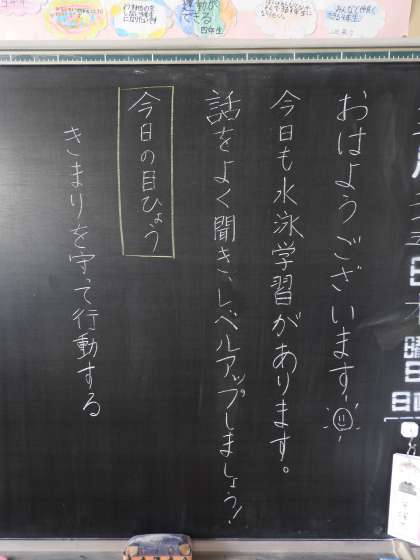 おはようございます!
今日も水泳学習があります。
話をよく聞き、レベルアップしましょう!
今日の目ひょう
きまりを守って行動する
曜
日
日直
できる
四年生